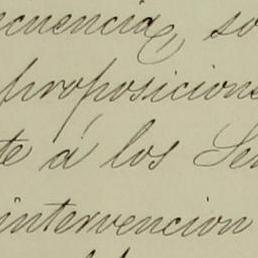 cuencia, so
proposicione
te á los Se
intervencion